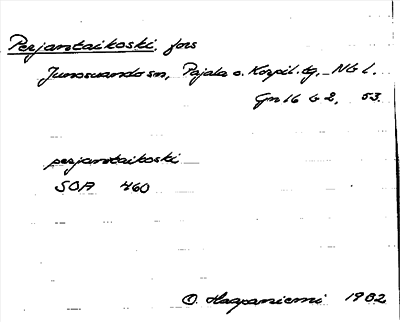 Perjantaikoski, fors
Junosuando sn, Pajala o. Korpil. tg. Nb l.
Gn 16 b 2, 53.
perjantaikoski
SOA 460
O. Haapaniemi 1982